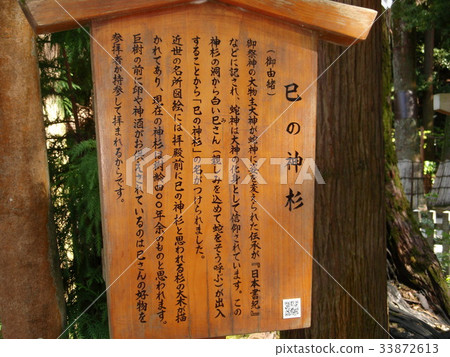 巳の神杉
（御由緒）
御祭神の大物主大神が蛇神に姿を変えられた伝承が『日本書紀』
などに記され、蛇神は大神の化身として信仰されています。この
神杉の洞から白い巳さん（親しみを込めて蛇をそう呼ぶ）が出入
することから「巳の神杉」の名がつけられました。
近世の名所図絵には拝殿前に巳の神杉と思われる杉の大木が描
かれてあり、現在の神杉は樹齢四〇〇年余のものと思われます。
巨樹の前に卵や神酒がお供えされているのは巳さんの好物を
参拝者が持参して拝まれるからです。
PIXTA
pixta.jp - 33872613